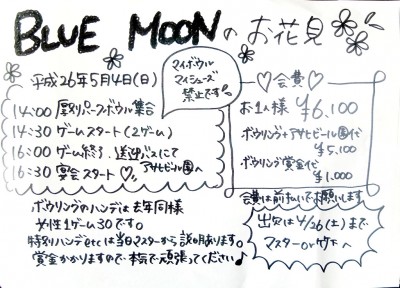 BLUE MOONのお花見
平成26年5月4日(日)
マイボウル
マイシューズ
禁止です
14:00 厚別パークボウル集合
14:30 ゲームスタート(2ゲーム)
16:00 ゲーム終了、送迎バスにて
アサヒビール園へ
16:30 宴会スタート♡。
♡会費♡
お1人様 ¥6,100
ボウリング+アサヒビール園代
¥5,100
ボウリング賞金代
¥1,000
会費は前払いでお願いします
ボウリングのハンデは去年同様
女性1ゲーム30です。
特別ハンデetcは当日マスターから説明あります。
賞金かかりますので本気で頑張ってください♪
出欠は4/26(土)まで
マスターor竹下へ